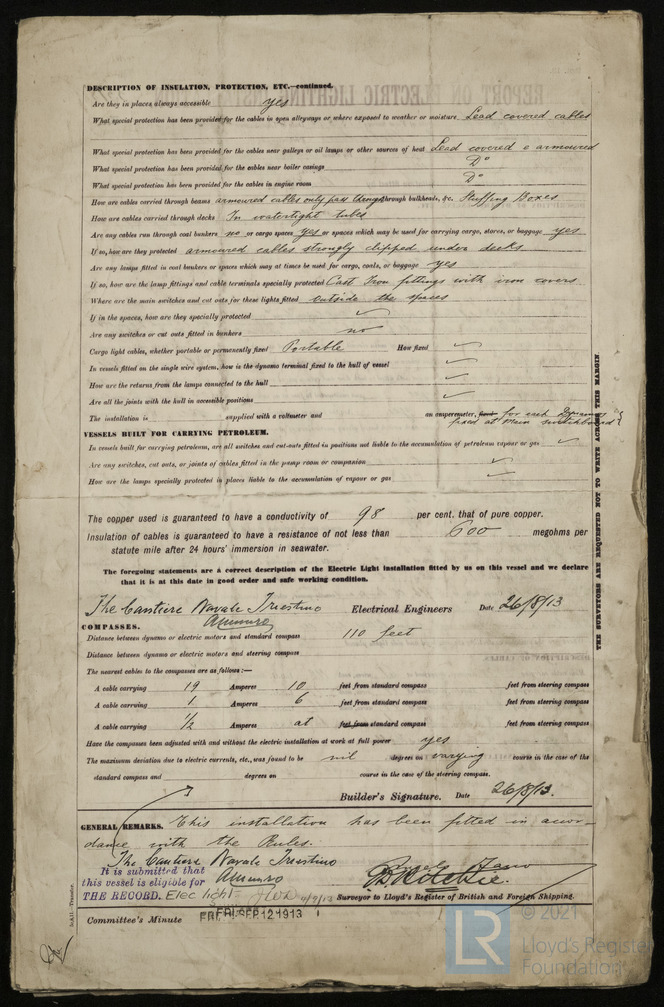 DESCRIPTION OF INSULATION, PROTECTION, ETC.—continued.
Are they in places always accessible yes
What special protection has been provided for the cables in open alleyways or where exposed to weather or moisture Lead covered cables
What special protection has been provided for the cables near galleys or oil lamps or other sources of heat Lead covered & armoured
What special protection has been provided for the cables near boiler casings Do
What special protection has been provided for the cables in engine room Do
How are cables carried through beams armoured cables only pass through through bulkheads, &c. Stuffing Boxes
How are cables carried through decks In watertight tubes
Are any cables run through coal bunkers no or cargo spaces yes or spaces which may be used for carrying cargo, stores, or baggage yes
If so, how are they protected armoured cables strongly clipped under decks
Are any lamps fitted in coal bunkers or spaces which may at times be used for cargo, coals, or baggage yes
If so, how are the lamp fittings and cable terminals specially protected Cast Iron fittings with iron covers
Where are the main switches and cut outs for these lights fitted outside the spaces
If in the spaces, how are they specially protected ✓
Are any switches or cut outs fitted in bunkers no
Cargo light cables, whether portable or permanently fixed Portable How fixed ✓
In vessels fitted on the single wire system, how is the dynamo terminal fixed to the hull of vessel ✓
How are the returns from the lamps connected to the hull ✓
Are all the joints with the hull in accessible positions ✓
The installation is supplied with a voltmeter and an amperemeter, fixed for each Dynamo
fixed at Main switchboard
VESSELS BUILT FOR CARRYING PETROLEUM.
In vessels built for carrying petroleum, are all switches and cut-outs fitted in positions not liable to the accumulation of petroleum vapour or gas ✓
Are any switches, cut outs, or joints of cables fitted in the pump room or companion ✓
How are the lamps specially protected in places liable to the accumulation of vapour or gas ✓
THE SURVEYORS ARE REQUESTED NOT TO WRITE ACROSS THIS MARGIN
The copper used is guaranteed to have a conductivity of 98 per cent. that of pure copper.
Insulation of cables is guaranteed to have a resistance of not less than 600 megohms per
statute mile after 24 hours' immersion in seawater.
The foregoing statements are a correct description of the Electric Light installation fitted by us on this vessel and we declare
that it is at this date in good order and safe working condition.
The Cantiere Navale Triestino Electrical Engineers Date 26/8/13
COMPASSES.
Distance between dynamo or electric motors and standard compass 110 feet
Distance between dynamo or electric motors and steering compass
The nearest cables to the compasses are as follows:—
A cable carrying 19 Amperes 10 feet from standard compass feet from steering compass
A cable carrying 1 Amperes 6 feet from standard compass feet from steering compass
A cable carrying 1/2 Amperes at feet from standard compass feet from steering compass
Have the compasses been adjusted with and without the electric installation at work at full power yes
The maximum deviation due to electric currents, etc., was found to be nil degrees on varying course in the case of the
standard compass and degrees on course in the case of the steering compass.
Builder's Signature. Date 26/8/13.
GENERAL REMARKS. This installation has been fitted in accor-
dance with the Rules.
The Cantiere Navale Triestino
It is submitted that
this vessel is eligible for
THE RECORD. Elec light
Surveyor to Lloyd's Register of British and Foreign Shipping.
Committee's Minute FRI. SEP. 12 1913
© 2021
LR
Lloyd's Register
Foundation